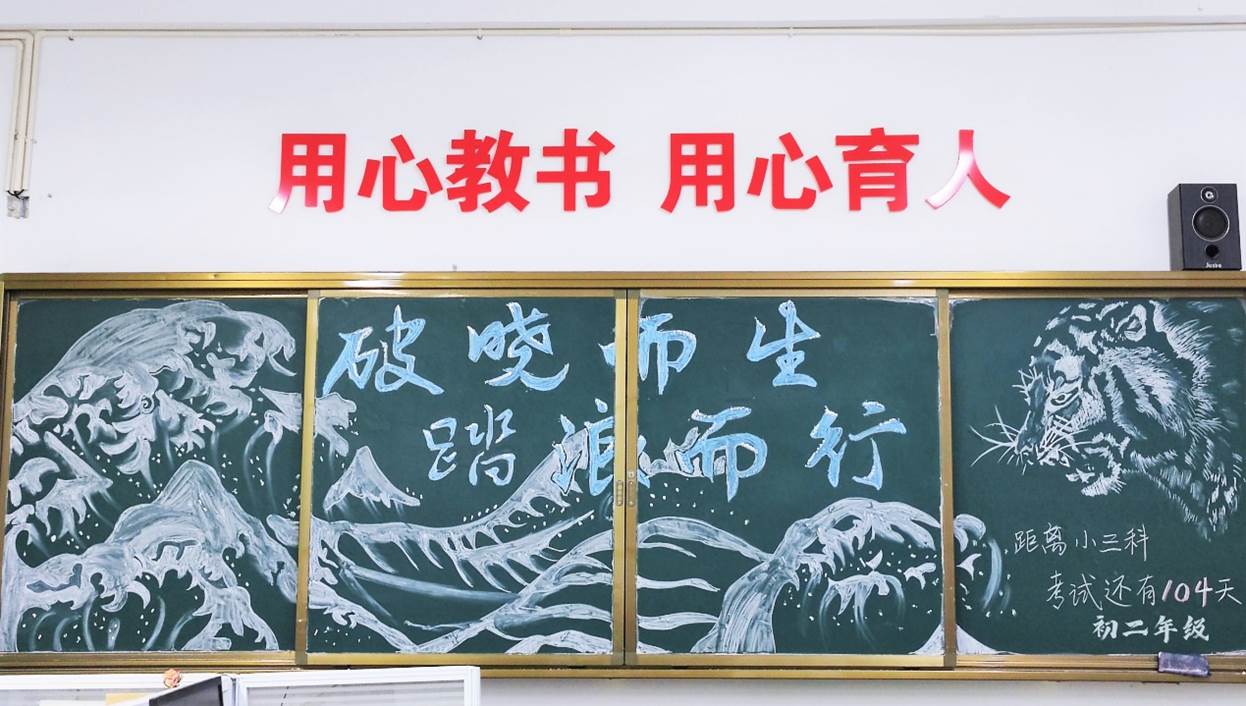 用心教书 用心育人
破晓而生
踏浪而行
距离小三科
考试还有104天
初二年级